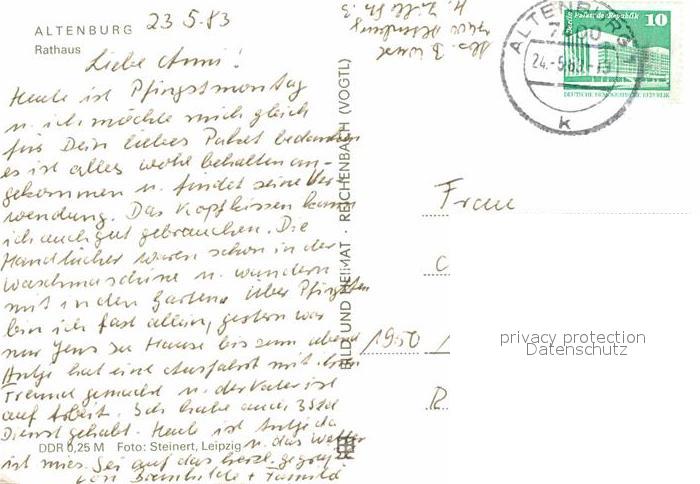 ALTENBURG
Rathaus
23.5.83
Liebe Anni!
Heute ist Pfingstmontag
u. ich möchte mich gleich
für Dein liebes Paket bedanken
es ist alles wohl behalten an-
gekommen u. findet seine Ver
wendung. Das Kopfkissen kann
ich auch gut gebrauchen. Die
Handtücher waren schon in der
Waschmaschine u. wandern
mit in den Garten. Über Pfingsten
bin ich fast allein, gestern war
nur Jens zu Hause bis zum abend
Antje hat eine Ausfahrt mit ihren
Freund gemacht u. der Vater ist
auf Arbeit. Ich habe auch
Dienst gehabt. Heute ist Antje da
u. das Wetter
ist mies. Sei auf das herzl. gegrüßt
von Brunhilde + Familie
DDR 0,25 M Foto: Steinert, Leipzig
BILD UND HEIMAT · REICHENBACH (VOGTL)
ALTENBURG
7400
24.-5.83.-
k
Berlin Palast der Republik
10
DEUTSCHE DEMOKRATISCHE REPUBLIK
Frau
C
1950 /
R
privacy protection
Datenschutz